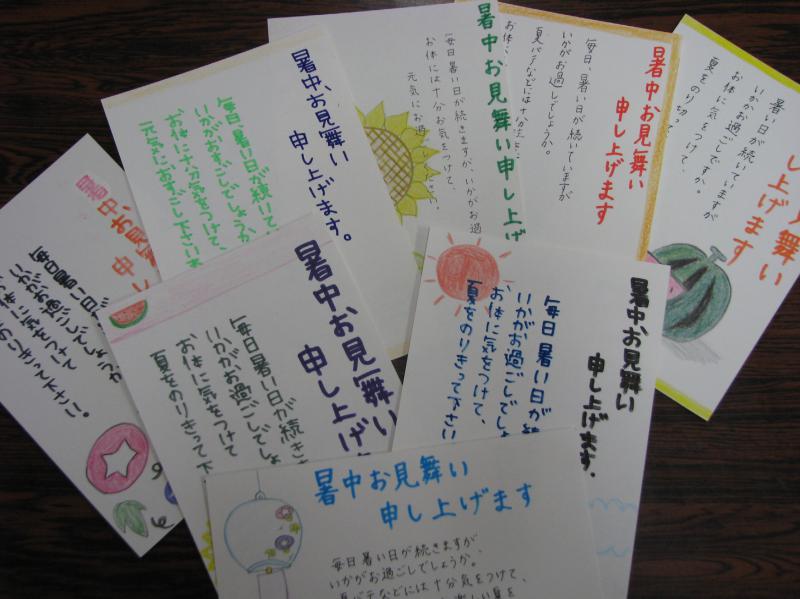 暑中お見舞い
申し
毎日暑い日が
いかがお過ごしでしょうか
お体に気をつけて
のりきって下さい。
暑中お見舞い
申し上げます。
毎日暑い日が続いて
いかがおすごしでしょうか
お体に十分気をつけて、
元気におすごし下さい
暑中お見舞い申し上げ
毎日暑い日が続きますが、いかがお過
お体には十分お気をつけて、
元気にお過
さい。
暑中お見舞い
申し上げます
毎日、暑い日が続いていますが
いかがお過しでしょうか。
夏バテなどには十分
お体
暑
舞い
し上げます
暑い日が続いていますが
いかがお過ごしですか。
お体に気をつけて、
夏をのり切って、
暑中お見舞い
申し上げ
毎日暑い日が続きま
いかがお過ごしでしょ
お体に気をつけて
夏をのりきって下
暑中お見舞い
申し上げます.
毎日暑い日が続
いかがお過ごしでしょ
お体に気をつけて、
夏をのりきって下さい
暑中お見舞い
申し上げます
毎日暑い日が続きますが
いかがお過ごしでしょうか。
夏バテなどには十分気をつけて、
楽しい夏を